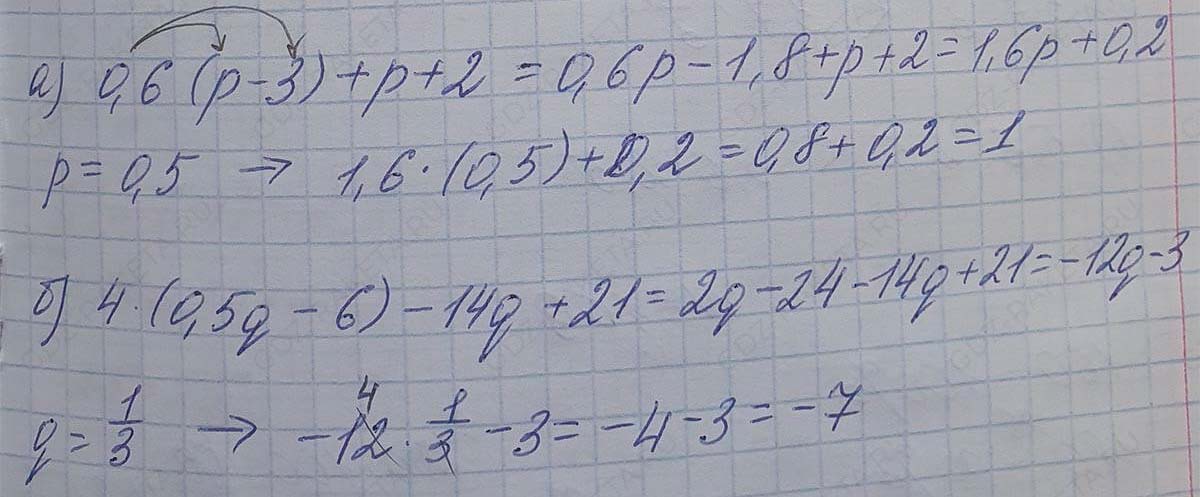 а) 0,6 (p-3)+p+2 = 0,6p-1,8+p+2=1,6p+0,2
p=0,5 → 1,6·(0,5)+0,2=0,8+0,2=1
б) 4·(0,5q-6)-14q+21=2q-24-14q+21=-12q-3
q=1/3 → -12·1/3-3=-4-3=-7